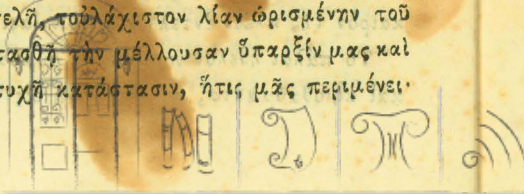 τελῆ, τοὐλάχιστον λίαν ὡρισμένην τοῦ
τασθῇ τὴν μέλλουσαν ὕπαρξίν μας καὶ
τυχῆ κατάστασιν, ἥτις μᾶς περιμένει·